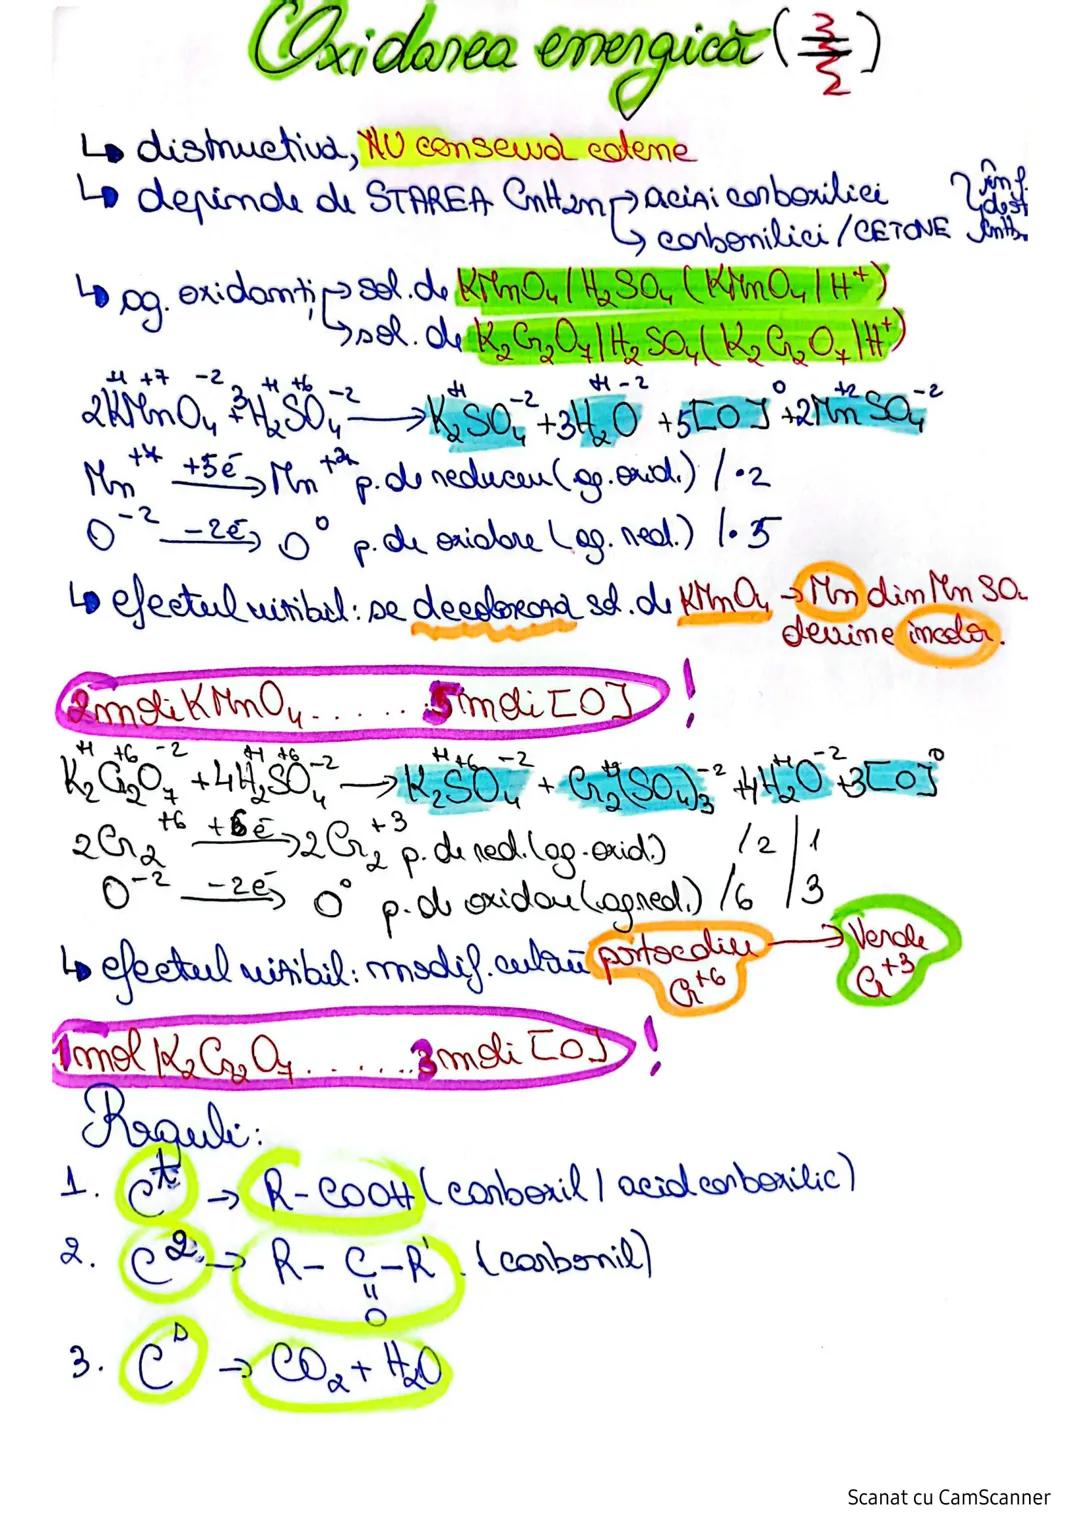 Oxidarea energică (
↳ distructivă, NU conservă catene
↳ depinde de STAREA CnH2n → acizi carboxilici
↳ carbonilici / CETONE
↳ ag. oxidanți → sol. de KMnO4 / H2SO4 (KMnO4 / H+)
↳ sol. de K2Cr2O7 / H2SO4 (K2Cr2O7 / H+)
2KMnO4 + 3H2SO4 → K2SO4 + 3H2O + 5[O] + 2MnSO4
Mn+7 +5e⁻→ Mn+2 p. de reducere (ag. oxid.) / ·2
O-2 -2e⁻→ O0 p. de oxidare (ag. red.) / ·5
↳ efectul vizibil: se decolorează sol. de KMnO4 → Mn din MnSO4
devine incolor.
2 moli KMnO4 . . . . . . 5 moli [O] !
K2Cr2O7 + 4H2SO4 → K2SO4 + Cr2(SO4)3 + 4H2O + 3[O]
2Cr2+6 +6e⁻→ 2Cr2+3 p. de red. (ag. oxid.) /2 | 1
O-2 -2e⁻→ O0 p. de oxidare (ag red.) /6 | 3
↳ efectul vizibil: modif. culorii portocaliu Cr+6 → Verde Cr+3
1 mol K2Cr2O7 . . . . . . 3 moli [O] !
Reguli:
1. Ct → R-COOH (carboxil / acid carboxilic)
2. C2 → R-C-R' (carbonil)
=O
3. Cp → CO2 + H2O
Scanat cu CamScanner